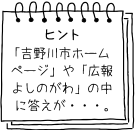 ヒント
「吉野川市ホーム
ページ」や「広報
よしのがわ」の中
に答えが・・・。